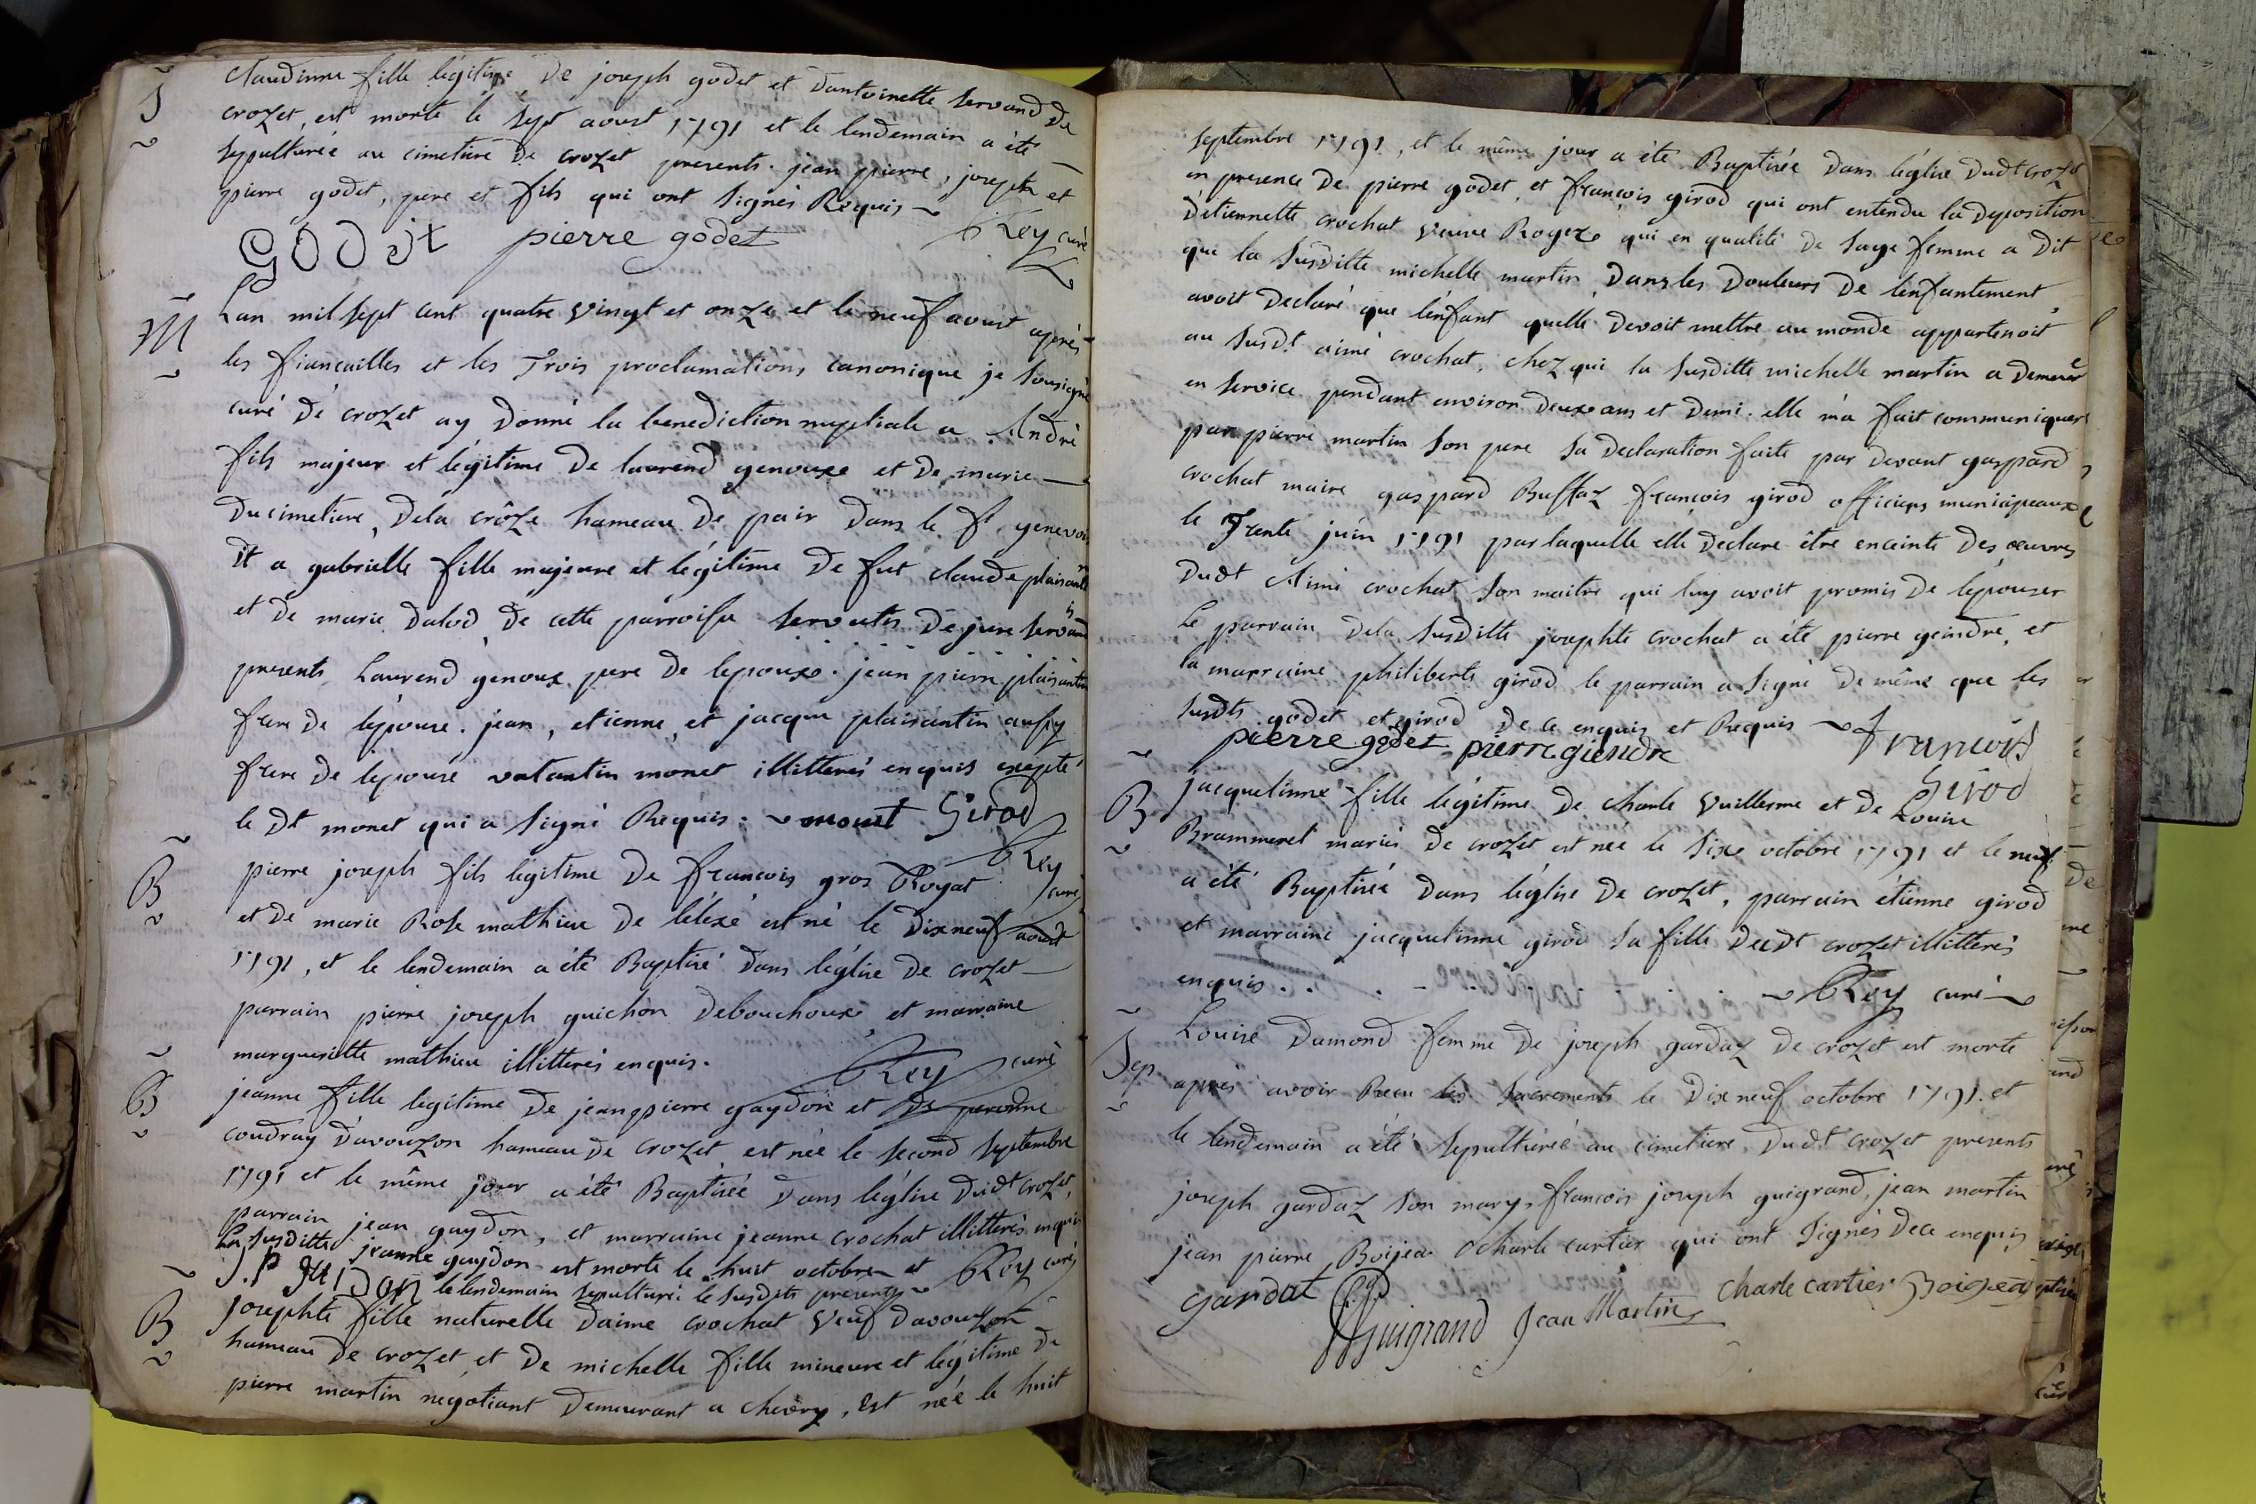 S
claudinne fille légitime de joseph godet et dantoinette servand de
crozet, est morte le sept aoust 1791 et le lendemain a été
sepulturée au cimetiere de crozet presents. jean pierre, joseph et
pierre godet, pere et fils qui ont signés Requis
GODET pierre godet Rey curé
M
Lan mil sept cent quatre vingt et onze et le neuf aoust aprés
les fiancailles et les Trois proclamations canonique je sousigné
curé de crozet ay donné la benediction nuptiale a André
fils majeur et légitime de laurend genouxe et de marie
ducimetiere, dela crôze hameau de pair dans le genevoi
et a gabrielle fille majeure et légitime de fut claude plaisantin
et de marie dalod de cette parroisse servatis de jure servandis
presents Laurend genoux pere de lepoux. jean pierre plaisantin
frere de lépouse. jean, etienne, et jacque plaisantin aussy
frere de lepouse vatantin monet illitterés enquis exepté
le dt monet qui a signé Requis. monet Girod
Rey curé
B
pierre joseph fils légitime de francois gros Royat
et de marie Rose mathieu de lélexé est né le dixneuf aoust
1791, et le lendemain a été Baptisé dans léglise de crozet
parrain pierre joseph guichon debouchoux, et marraine
marguerite mathieu illitterés enquis. Rey curé
B
jeanne fille legitime de jeanpierre gaydon et de peronne
coudray davouzon hameau de crozet est née le second septembre
1791 et le même jour a été Baptisée dans léglise dudt crozet,
parrain jean gaydon, et marraine jeanne crochat illitterés enquis
La susditte jeanne gaydon est morte le huit octobre et Rey curé
J.P GeiDon le lendemain sepulturée le susdits presents
B
josephte fille naturelle daimé crochat veuf davouzon
hameau de crozet et de michelle fille mineure et légitime de
pierre martin négotiant demeurant a chevry, Est née le huit
septembre 1791, et le même jour a été Baptisée dans léglise dudt crozet
en presence de pierre godet, et françois girod qui ont entendu la deposition
détiennette crochat veuve Roger qui en qualité de sage femme a dit
que la susditte michelle martin, dans les douleurs de lenfantement,
avoit declaré que lénfant quelle devoit mettre au monde appartenoit
au susdt aimé crochat, chez qui la susditte michelle martin a demeuré
en service pendant environ deux ans et demi. elle ma fait communiquer
par pierre martin son pere sa declaration faite par devant gaspard
crochat maire gaspard Buffaz françois girod officiers municipeaux
le Trente juin 1791 par laquelle elle declare être enceinte des oeuvres
dudt Aimé crochat son maitre qui luy avoit promis de lépouser
Le parrain dela susditte josephte crochat a été pierre geindre, et
la marraine philiberte girod le parrain a signé de même que les
susdts godet et girod de ce enquis et Requis François
pierre godet pierre giendre Girod
B
jacquelinne fille légitime de charle vuillerme et de Louise
Brammeret mariés de crozet est née le sixe octobre 1791 et le neuf
a été Baptisée dans léglise de crozet, parrain étienne girod
et marraine jacquelinne girod sa fille dudt crozet illitterés
enquis . . . . Rey curé
Sep
Louise Damond femme de joseph gardaz de crozet est morte
aprés avoir Recu les sacrements le dixneuf octobre 1791. et
le lendemain a été sepulturée au cimetiere dudt crozet presents
joseph gardaz son mary, francois joseph guigrand, jean martin
jean pierre Boijea Charle cartier qui ont signés dece enquis
gardat Guigrand Jean Martin Charle cartier Boigea